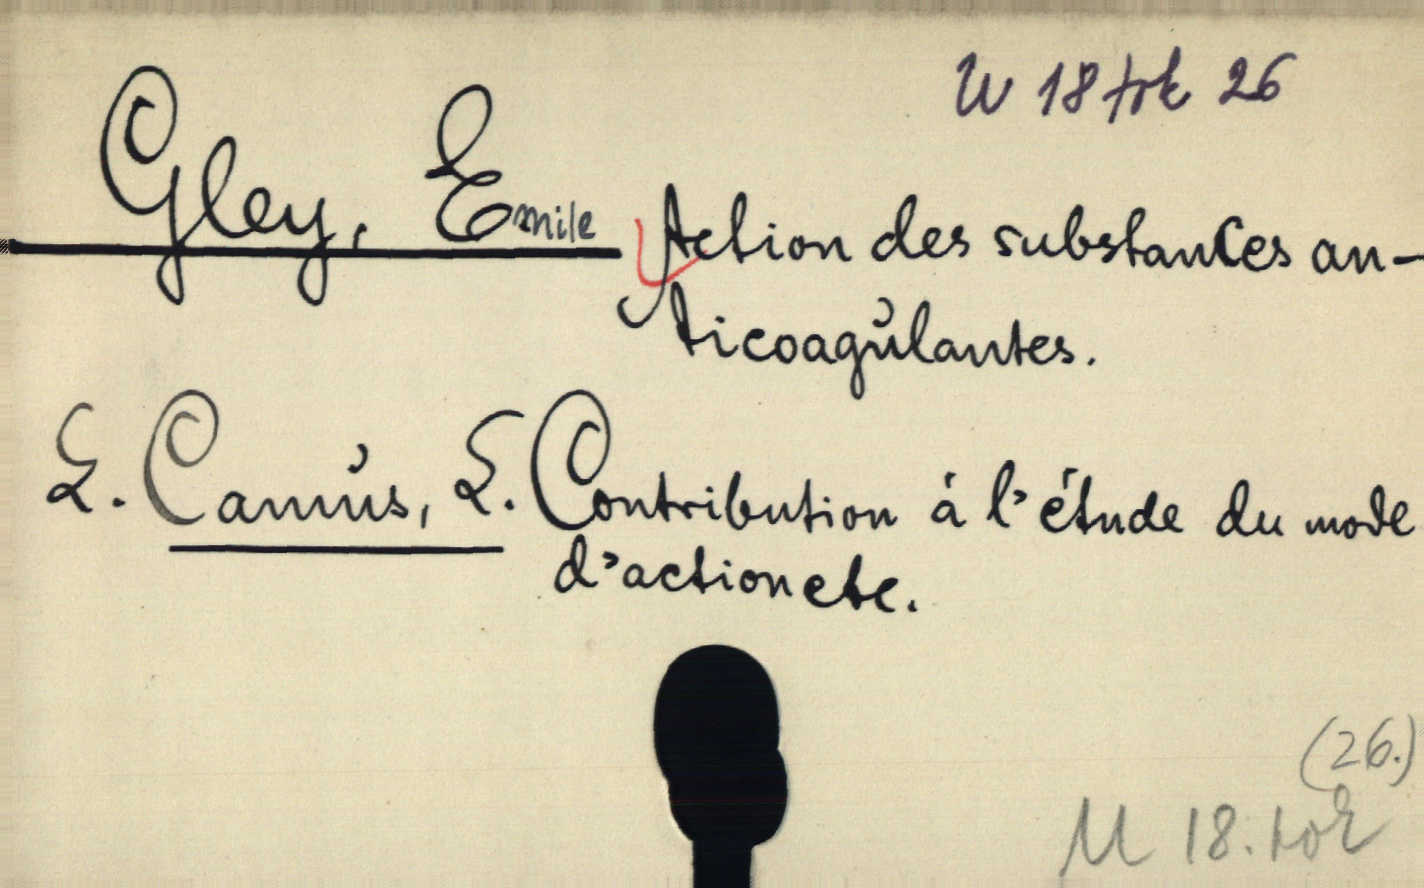 W 18 trk 26
Gley, Emile Action des substances an-
ticoagulantes.
L. Camus, L. Contribution à l'étude du mode
d'action etc.
(26.)
M 18.